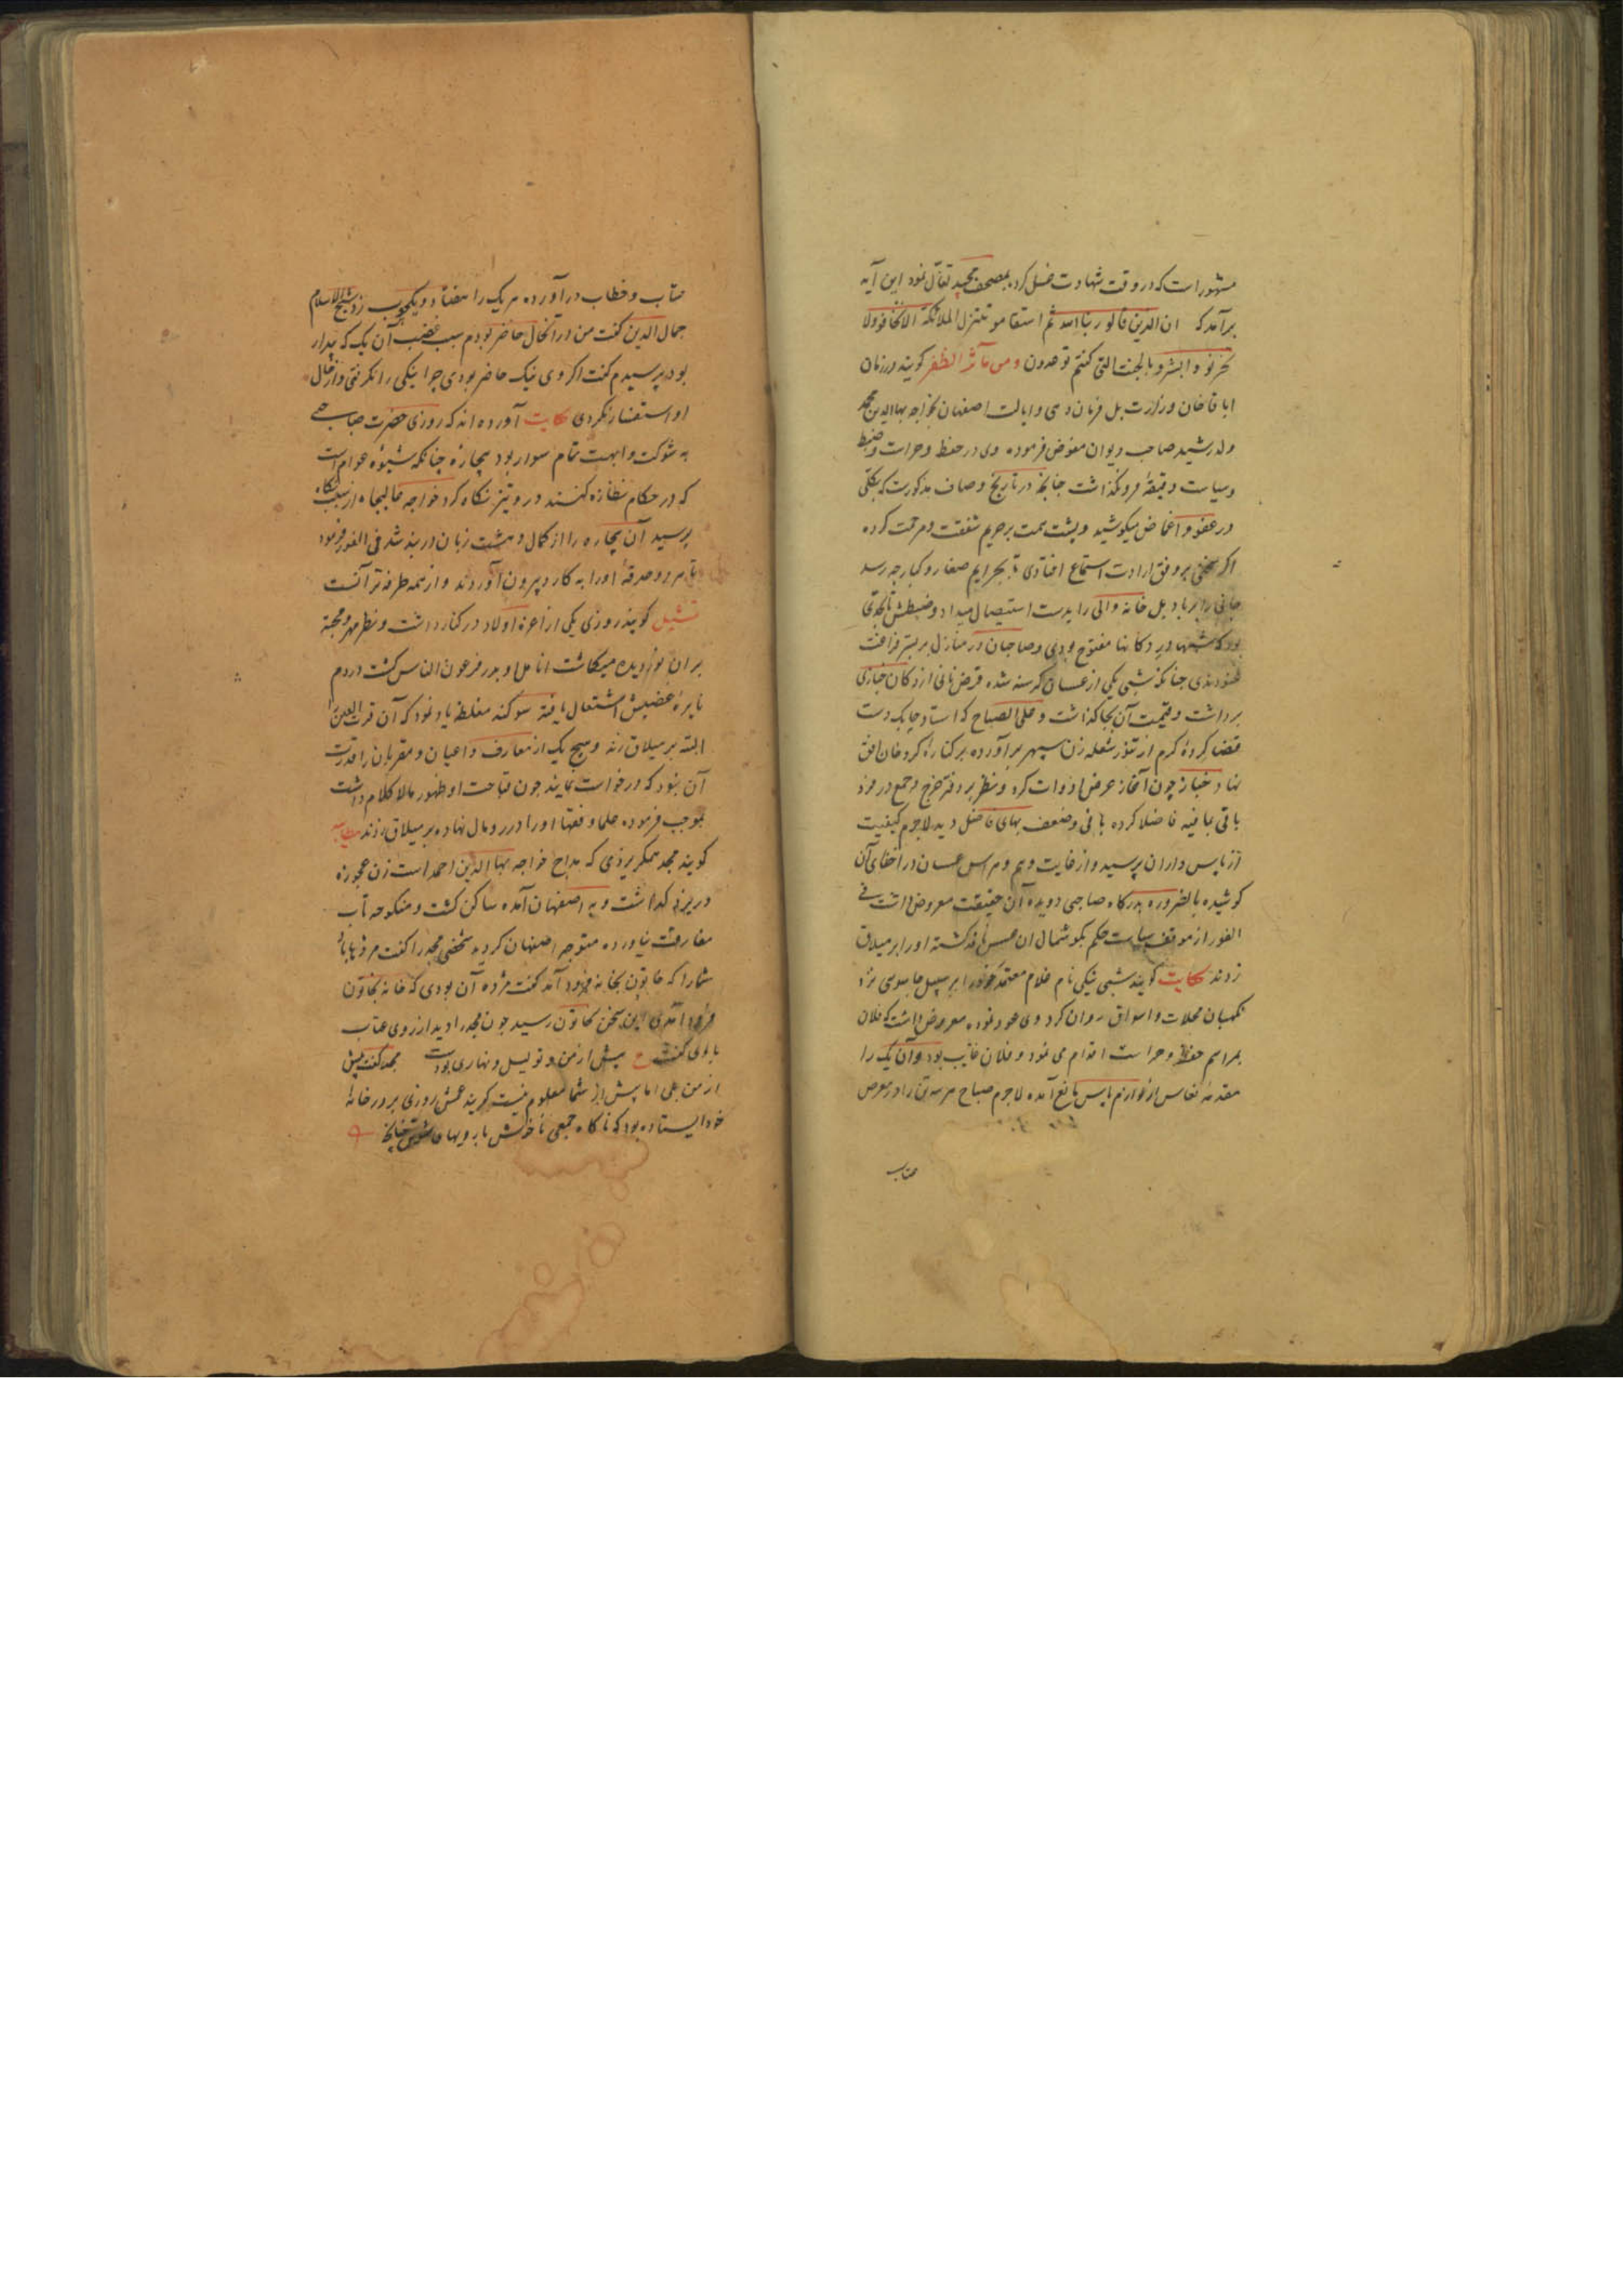 مشهور است که در وقت شهادت غسل کرد بمصحف مجید تفأل نمود این آیه
برآمد که ان الذین قالو ربنا الله ثم استقامو تتنزل الملائکة الا تخافو ولا
تحزنو و ابشرو بالجنة التی کنتم توعدون ومن مآثر الظفر کویند در زمان
اباقاخان وزارت بل فرمان دهی و ایالت اصفهان بخواجه بهاالدین محمد
ولد رشید صاحب دیوان مفوض فرموده وی در حفظ و حراست و ضبط
و سیاست دقیقهٔ فرو نکذاشت چنانچه در تاریخ وصاف مذکورست که بکلی
در عفو و اغماض میکوشید و پشت همت بر جریم شفقت و مرحمت کرده
اکر سخنی بر وفق ارادت استماع افتادی تا بجرایم صغار و کبار چه رسد
جانی را بر باد بل خانه والی را بدست استیصال میداد و ضبطش تا بحدی
بود که شبها در دکانها مفتوح بودی و صاحبان در منازل بر بستر فراغت
غنودندی چنانکه شبی یکی از عسسان کرسنه شده قرص نانی از دکان خبازی
برداشت و قیمت آن بجا کذاشت و علی الصباح که استاد چابک دست
قضا کردهٔ کرم از تنور شعله زن سپهر برآورده بر کنارهٔ کرد خان افق
نهاد خباز چون آغاز عرض ادوات کرد و نظر بر دفتر خرج و جمع در مزد
باقی بما فیه فاضلا کرده نانی و ضعف بهای فاضل دید لاجرم کیفیت
از پاس داران پرسید و از غایت وهم و هراس عسسان در اخفای آن
کوشیده بالضروره بدرکاه صاحبی دویده آن حقیقت معروض داشت فی
الفور از موقف سیاست حکم بکوشمال ان عسس نافذ کشته او را بر میلاق
زدند حکایت کویند شبی نیکی نام غلام معتمد خود را بر سبیل جاسوسی نزد
نکهبان محلات و اسواق روان کرد وی عود نموده معروض داشت که فلان
بمراسم حفظ و حراست اقدام می نمود و فلان غایب بود و آن یک را
مقدمهٔ نعاس از لوازم پاس مانع آمده لاجرم صباح هر سه تن را در معرض
عتاب
عتاب و خطاب در آورده هر یک را هفتاد و یکچوب زد شیخ الاسلام
جمال الدین کفت من در آنحال حاضر بودم سبب غضب آن یک که بیدار
بود پرسیدم کفت اکر وی نیک حاضر بودی چرا نیکی را نکرفتی و از حال
او استفسار نکردی حکایت آورده اند که روزی حضرت صاحبی
به شوکت و ابهت تمام سوار بود بیچارهٔ چنانکه شیوهٔ عوام است
که در حکام نظاره کنند در وی تیز نکاه کرد خواجه عالیجاه از سبب نکاه
پرسید آن بیچاره را از کمال دهشت زبان در بند شد فی الفور فرمود
تا هر دو حدقهٔ او را به کارد بیرون آوردند و از همه طرفه تر آنست
تمثیل کویند روزی یکی از اعزهٔ اولاد در کنار داشت و نظر مهر و محبة
بر ان نور دیده میکماشت انامل او بدر فرعون الناس کشت در دم
نایرهٔ غضبش اشتعال یافته سوکند مغلظه یاد نمود که آن قرت العین را
البته بر میلاق زند و هیچ یک از معارف و اعیان و مقربان را قدرت
آن نبود که درخواست نمایند چون قباحت او ظهور مالا کلام داشت
بموجب فرموده علما و فقها او را در رومال نهاده بر میلاق زدند مطایبه
کویند مجد همکر یزدی که مداح خواجه بهاالدین احمد است زن عجوزه
در یزد کذاشت و به اصفهان آمده ساکن کشت و منکوحه تاب
مفارقت نیاورده متوجه اصفهان کردید شخصی مجد را کفت مژده باد
شما را که خاتون بخانه فرود آمد کفت مژده آن بودی که خانه بخاتون
فرود آمدی این سخن بخاتون رسید چون مجد را دید از روی عتاب
باوی کفت ع پیش از من و تو لیل و نهاری بودست مجد کفت پیش
از من بلی اما پیش از شما معلوم نیست کویند عمش روزی بر در خانهٔ
خود ایستاده بود که ناکاه جمعی ناخوش با رویها